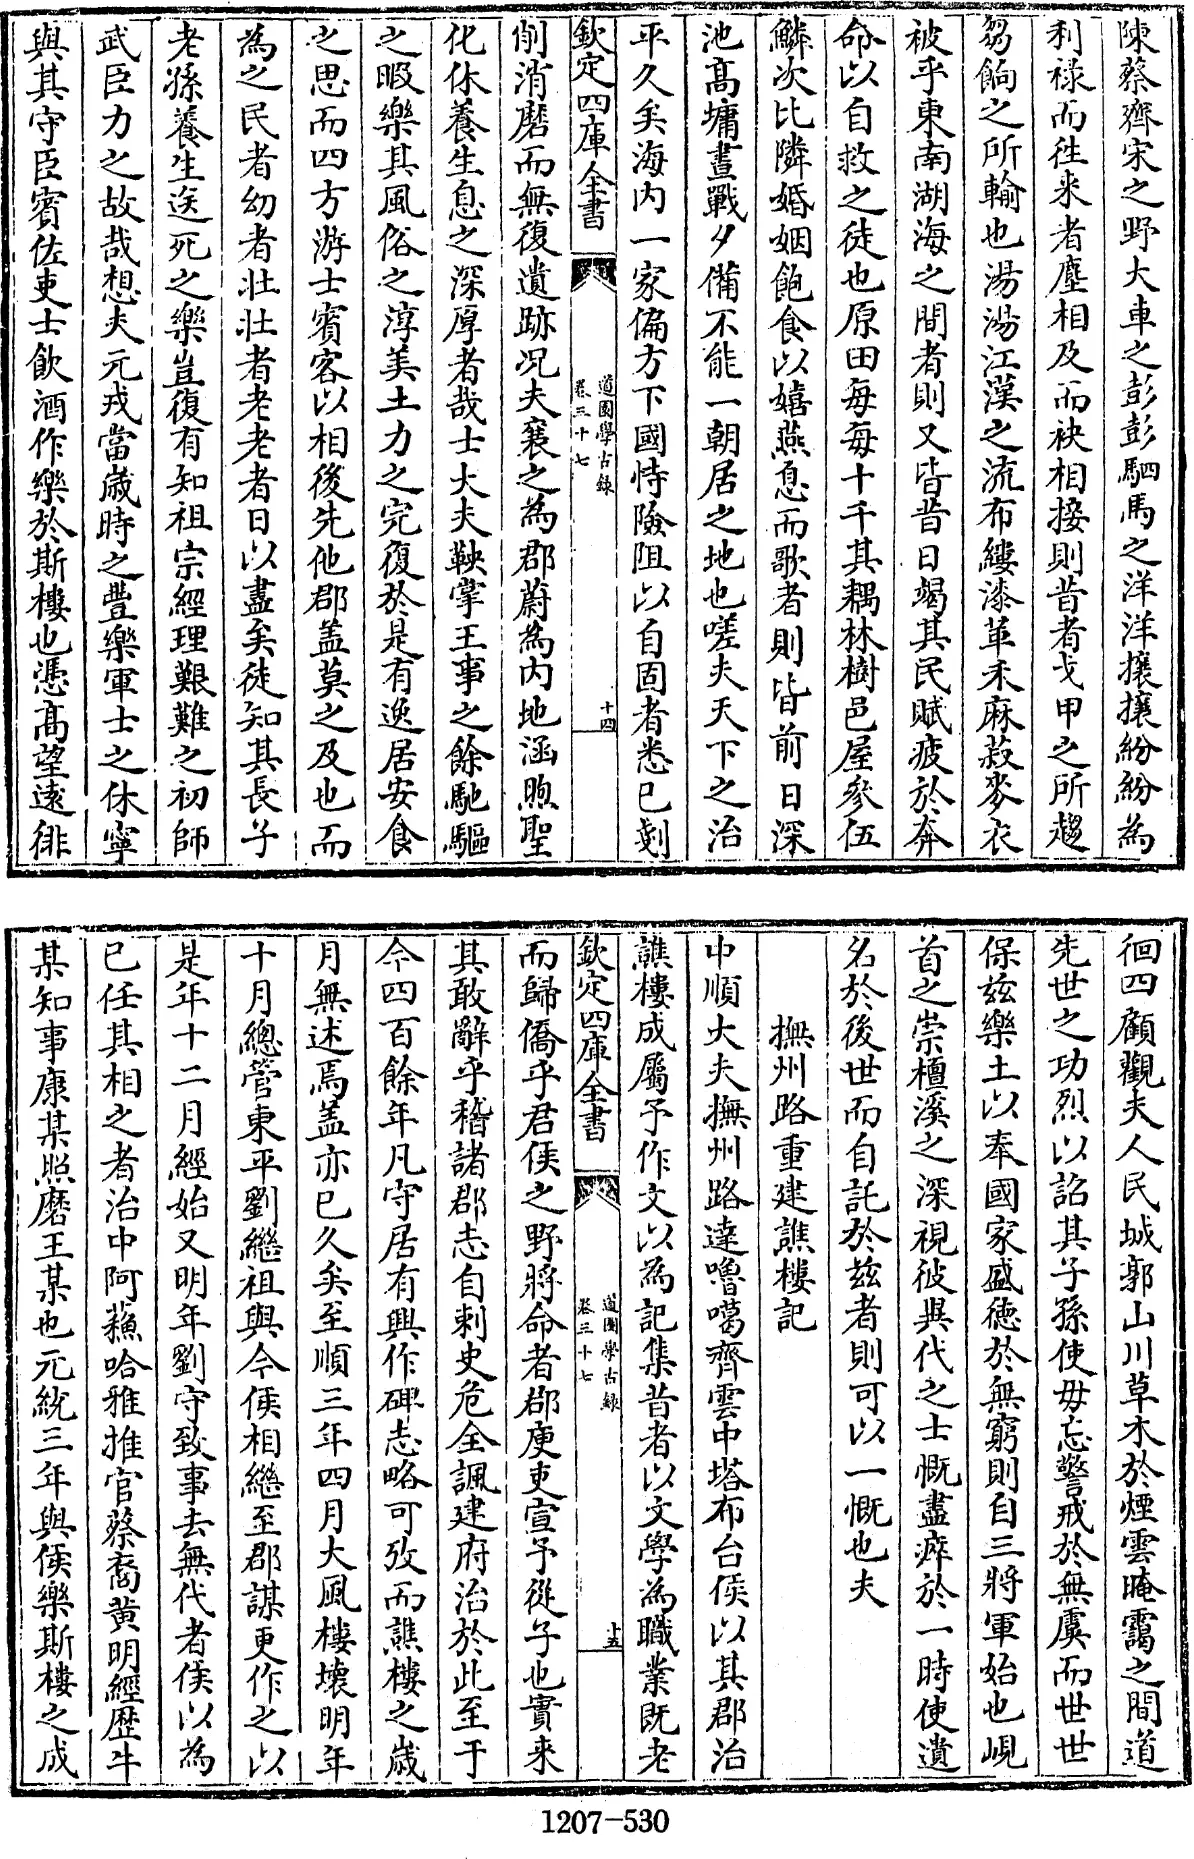 陳蔡齊宋之野大車之彭彭駟馬之洋洋攘攘紛紛為
利禄而徃来者塵相及而袂相接則昔者戈甲之所趨
芻餉之所輸也湯湯江漢之流布縷漆革禾麻菽麥衣
被乎東南湖海之間者則又皆昔日竭其民賦疲於奔
命以自救之徒也原田每每十千其耦林樹邑屋參伍
鱗次比隣婚姻飽食以嬉燕息而歌者則皆前日深
池髙墉晝戰夕備不能一朝居之地也嗟夫天下之治
平久矣海内一家偏方下國恃險阻以自固者悉已剗
欽定四庫全書
道園學古録
卷三十七
十四
削消磨而無復遺跡况夫襄之為郡蔚為内地涵煦聖
化休養生息之深厚者哉士大夫鞅掌王事之餘馳驅
之暇樂其風俗之淳美土力之完復於是有逸居安食
之思而四方游士賓客以相後先他郡盖莫之及也而
為之民者幼者壯壯者老老者日以盡矣徒知其長子
老孫養生送死之樂豈復有知祖宗經理艱難之初師
武臣力之故哉想夫元戎當歲時之豐樂軍士之休寧
與其守臣賓佐吏士飲酒作樂於斯樓也憑髙望逺徘
徊四顧觀夫人民城郭山川草木於煙雲晻靄之間道
先世之功烈以詔其子孫使毋忘警戒於無虞而世世
保兹樂土以奉國家盛徳於無窮則自三將軍始也峴
首之崇檀溪之深視彼異代之士慨盡瘁於一時使遺
名於後世而自託於兹者則可以一慨也夫
撫州路重建譙樓記
中順大夫撫州路達嚕噶齊雲中塔布台侯以其郡治
譙樓成屬予作文以為記集昔者以文學為職業既老
欽定四庫全書
道園學古録
卷三十七
十五
而歸僑乎君侯之野將命者郡吏宣予從子也實来
其敢辭乎稽諸郡志自刺史危全諷建府治於此至于
今四百餘年凡守居有興作碑志略可攷而譙樓之歲
月無述焉盖亦已久矣至順三年四月大風樓壊明年
十月總管東平劉繼祖與今侯相繼至郡謀更作之以
是年十二月經始又明年劉守致事去無代者侯以為
已任其相之者治中阿蘓哈雅推官蔡裔黄明經歴牛
某知事康某照磨王某也元統三年與侯樂斯樓之成
1207-530